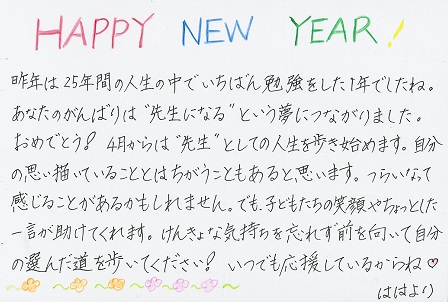 HAPPY NEW YEAR!
昨年は25年間の人生の中でいちばん勉強をした1年でしたね。
あなたのがんばりは“先生になる”という夢につながりました。
おめでとう! 4月からは“先生”としての人生を歩き始めます。自分
の思い描いていることとはちがうこともあると思います。つらいなって
感じることがあるかもしれません。でも、子どもたちの笑顔やちょっとした
一言が助けてくれます。けんきょな気持ちを忘れず前を向いて自分
の選んだ道を歩いてください! いつでも応援しているからね♡
ははより